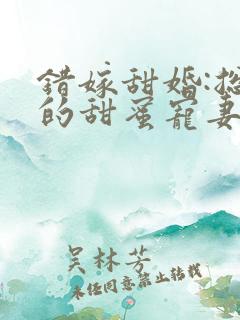 错嫁甜婚:总
的甜蜜宠妻
吴林芳
未经同意禁止转载